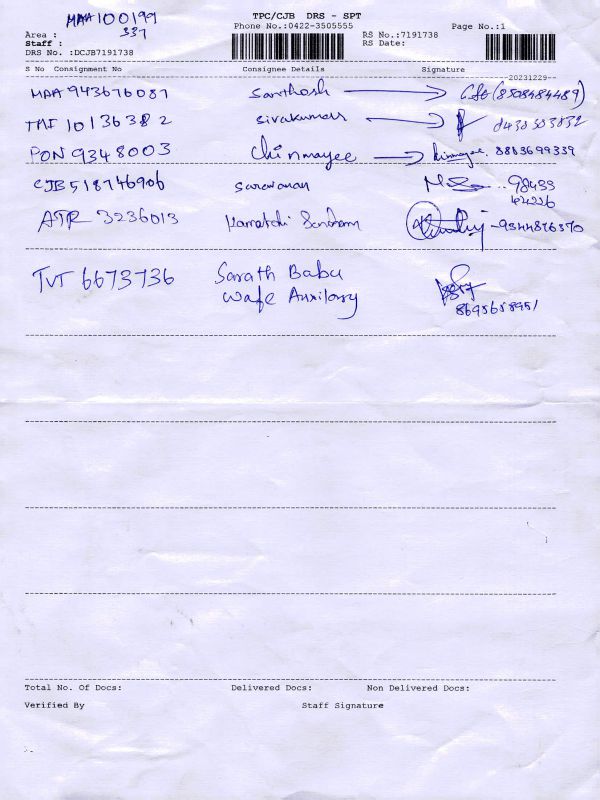 MAA 100199
337
TPC/CJB DRS - SPT
Phone No.:0422-3505555
Page No.:1
Area :
Staff :
DRS No. :DCJB7191738
RS No.:7191738
RS Date:
S No Consignment No Consignee Details Signature
--20231229--
MAA 943676087 Santhosh (8508484489)
10136382 Sivakumar
PON 9348003 Chinmayee 8883699339
CJB 518746906 Saravanan 98433
44226
ATR 3236013 Kamatchi 9344876370
TVT 6673736 Sarath Babu
Wafe Auxilary
8695658951
Total No. Of Docs: Delivered Docs: Non Delivered Docs:
Verified By Staff Signature